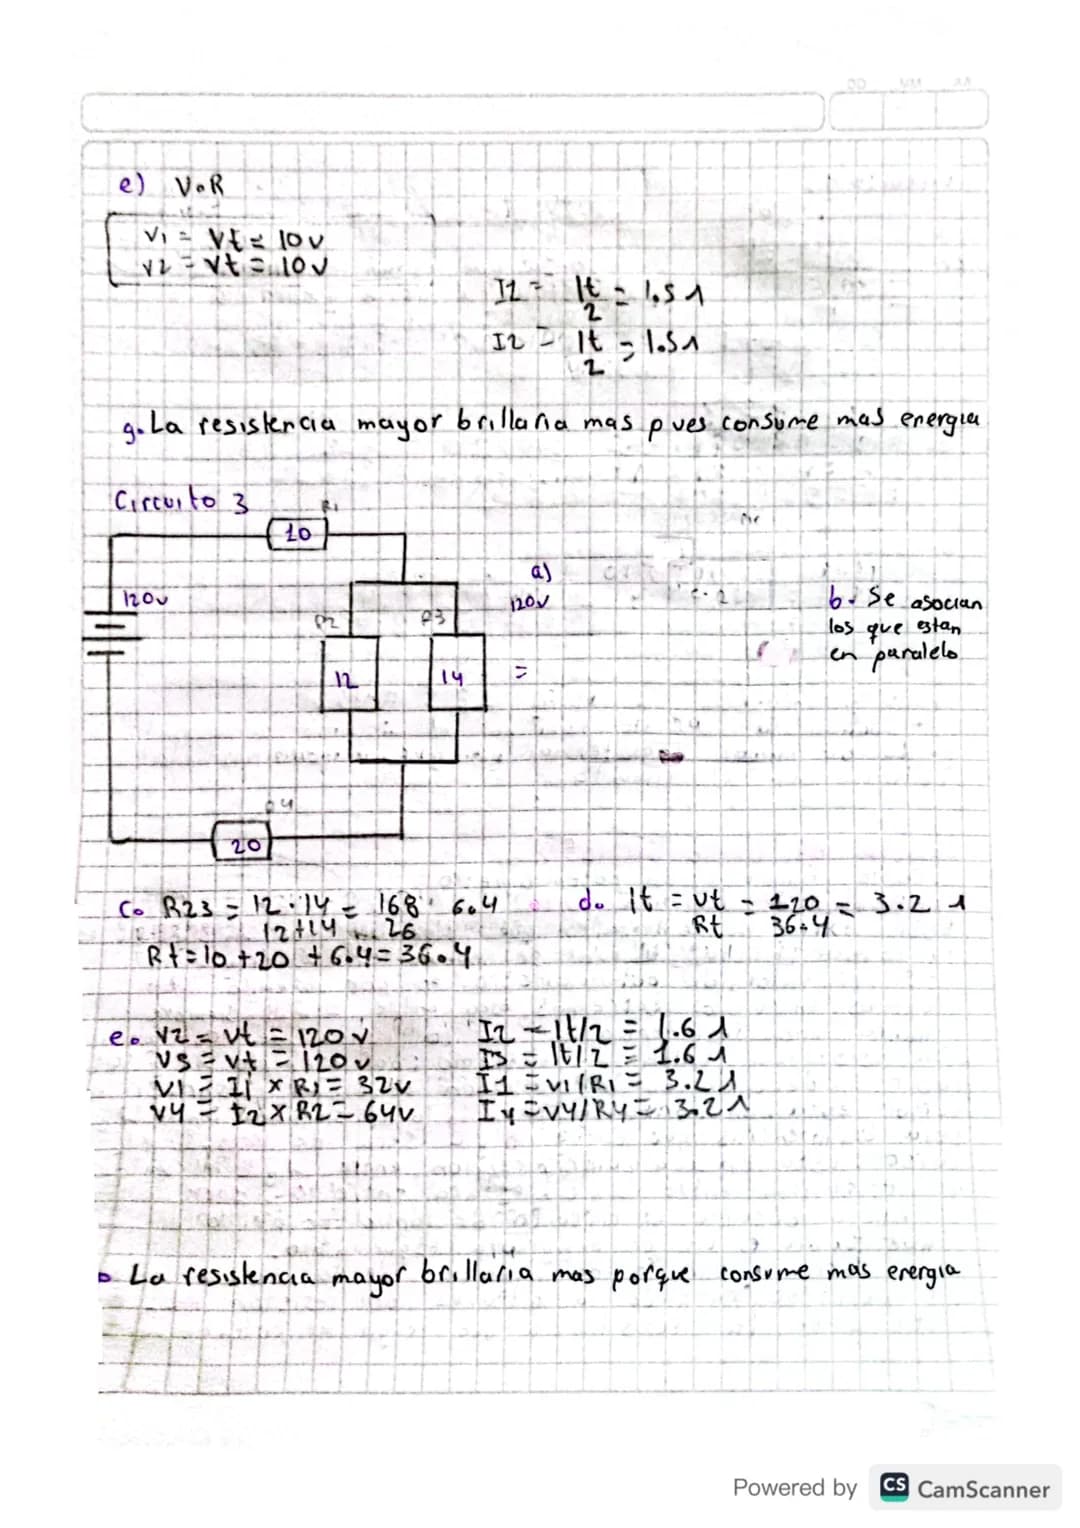 e) V.R
V1 = Vt = 10v
V2 = Vt = 10v
I1 = It/2 = 1.5 A
I2 = It/2 = 1.5A
g. La resistencia mayor brillaria mas pues consume mas energia
Circuito 3
R1
10
120v
R2
R3
12
14
R4
20
a)
120v
=
b. Se asocian
los que estan
en paralelo
c. R23 = 12·14/12+14 = 168/26 6.4
Rt = 10 + 20 + 6.4 = 36.4
d. It = Vt/Rt = 120/36.4 = 3.2 A
e. V2 = Vt = 120v
V3 = Vt = 120v
V1 = I1 x R1 = 32v
V4 = I2 x R2 = 64v
I2 = It/2 = 1.6 A
I3 = It/2 = 1.6 A
I1 = V1/R1 = 3.2A
I4 = V4/R4 = 3.2A
La resistencia mayor brillaria mas porque consume mas energia
Powered by CS CamScanner